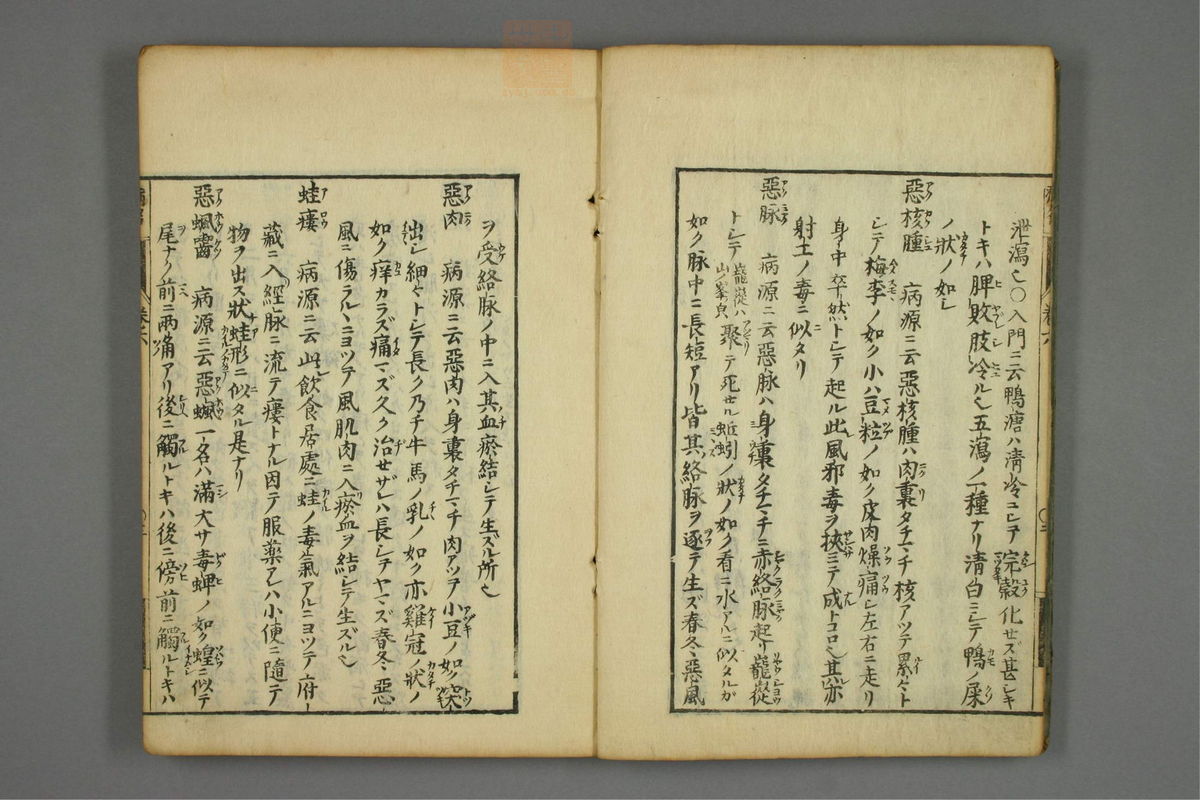 泄瀉也〇入門ニ云鴨溏ハ清冷ニシテ完穀化セズ甚シキ
トキハ脾敗肢冷ルヽ也五瀉ノ一種ナリ清白ニシテ鴨ノ屎
ノ狀ノ如シ
惡核腫 病源ニ云惡核腫ハ肉裏タチマチ核アツテ累々ト
シテ梅李ノ如ク小ハ豆粒ノ如ク皮肉燥痛シ左右ニ走リ
身中卒然トシテ起ル此風邪毒ヲ挾ミテ成トコロ也其亦
射工ノ毒ニ似タリ
惡脉 病源ニ云惡脉ハ身裏タチマチニ赤絡脉起リ巃嵸
トシテ巃嵸ハ山ノ峯貌聚テ死セル蚯蚓ノ狀ノ如ク看ニ水アルニ似タルガ
如ク脉中ニ長短アリ皆其絡脉ヲ逐テ生ズ春冬惡風
ヲ受絡脉ノ中ニ入其血瘀結シテ生ズル所也
惡肉 病源ニ云惡肉ハ身裏タチマチ肉アツテ小豆ノ如ク突
出シ細々トシテ長ク乃チ牛馬ノ乳ノ如ク亦雞冠ノ狀ノ
如ク痒カラズ痛マズ久ク治セザレハ長シテヤマズ春冬惡
風ニ傷ラルヽニヨツテ風肌肉ニ入瘀血ヲ結シテ生ズル也
蛙瘻 病源ニ云此飲食居處ニ蛙ノ毒氣アルニヨツテ府
藏ニ入經脉ニ流テ瘻トナル因テ服藥アレハ小便ニ隨テ
物ヲ出ス狀蛙形ニ似タル是ナリ
惡 病源ニ云惡 一名ハ滿大サ毒蜱ノ如ク蝗ニ似テ
尾ナク前ニ兩角アリ後ニ觸ルトキハ後ニ傍前ニ觸ルトキハ